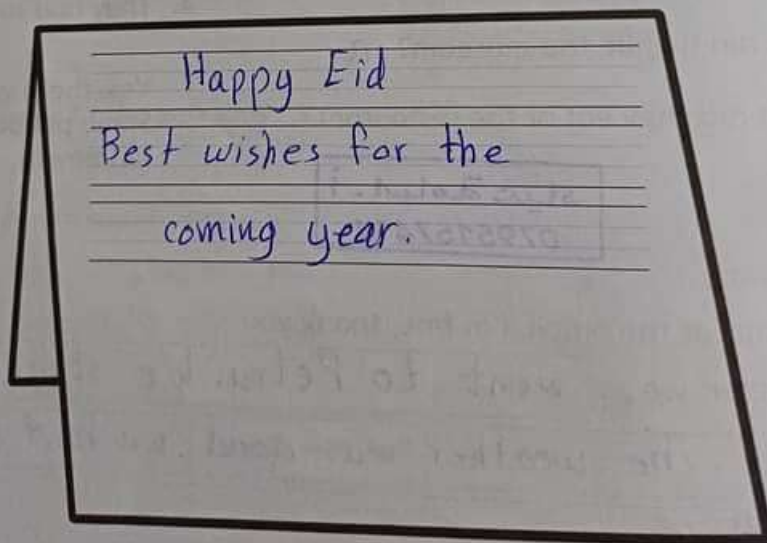 Happy Eid
Best wishes for the
coming year.